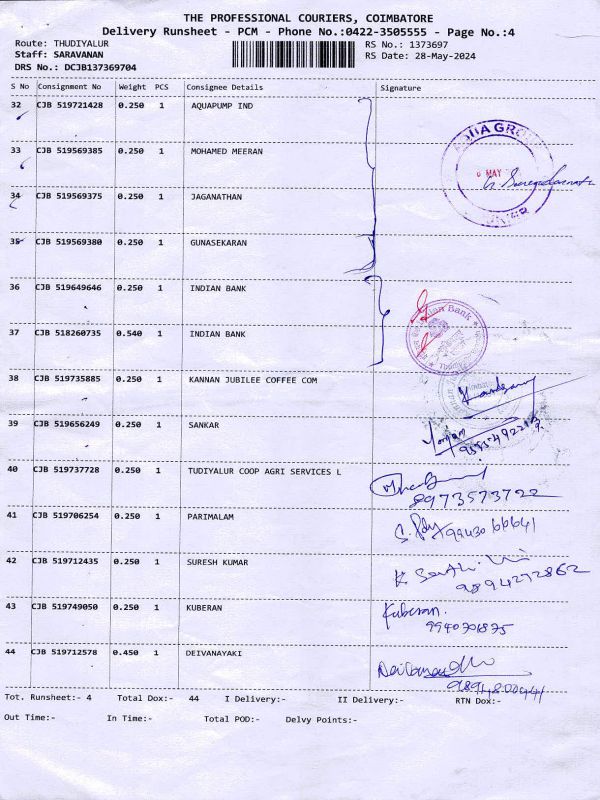 THE PROFESSIONAL COURIERS, COIMBATORE
Delivery Runsheet - PCM - Phone No.:0422-3505555 - Page No.:4
Route: THUDIYALUR RS No.: 1373697
Staff: SARAVANAN RS Date: 28-May-2024
DRS No.: DCJB137369704
S No Consignment No Weight PCS Consignee Details Signature
32 CJB 519721428 0.250 1 AQUAPUMP IND
33 CJB 519569385 0.250 1 MOHAMED MEERAN
MAY
34 CJB 519569375 0.250 1 JAGANATHAN
35 CJB 519569380 0.250 1 GUNASEKARAN
36 CJB 519649646 0.250 1 INDIAN BANK
Indian Bank
37 CJB 518260735 0.540 1 INDIAN BANK
38 CJB 519735885 0.250 1 KANNAN JUBILEE COFFEE COM
39 CJB 519656249 0.250 1 SANKAR
40 CJB 519737728 0.250 1 TUDIYALUR COOP AGRI SERVICES L
8973573722
41 CJB 519706254 0.250 1 PARIMALAM
99430 66641
42 CJB 519712435 0.250 1 SURESH KUMAR
9894272862
43 CJB 519749050 0.250 1 KUBERAN
Kuberan.
9940701875
44 CJB 519712578 0.450 1 DEIVANAYAKI
Tot. Runsheet:- 4 Total Dox:- 44 I Delivery:- II Delivery:- RTN Dox:-
Out Time:- In Time:- Total POD:- Delvy Points:-